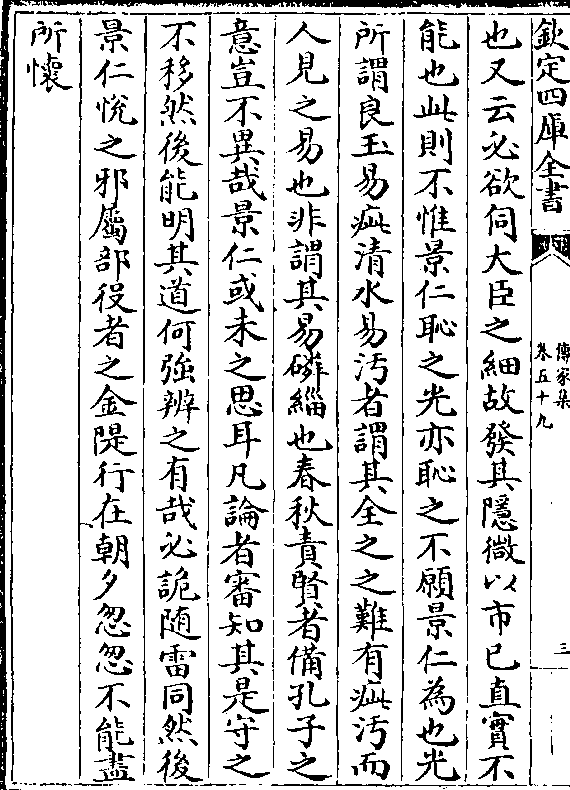 欽定四庫全書
傳家集
卷五十九
三
也又云必欲伺大臣之細故發其隱微以市己直實不
能也此則不惟景仁恥之光亦恥之不願景仁為也光
所謂良玉易疵清水易汚者謂其全之之難有疵汚而
人見之易也非謂其易磷緇也春秋責賢者備孔子之
意豈不異哉景仁或未之思耳凡論者審知其是守之
不移然後能明其道何強辨之有哉必詭随雷同然後
景仁悅之邪屬部役者之金隄行在朝夕忽忽不能盡
所懷